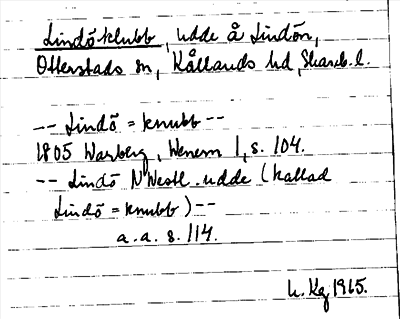 Lindö klubb, udde å Lindön,
Otterstads sn, Kållands hd, Skarab. l.
-- Lindö = knubb --
1805 Warberg, Wenern 1, s. 104.
-- Lindö N Westl. udde (kallad
Lindö = knubb) --
a. a. s. 114.
1965.